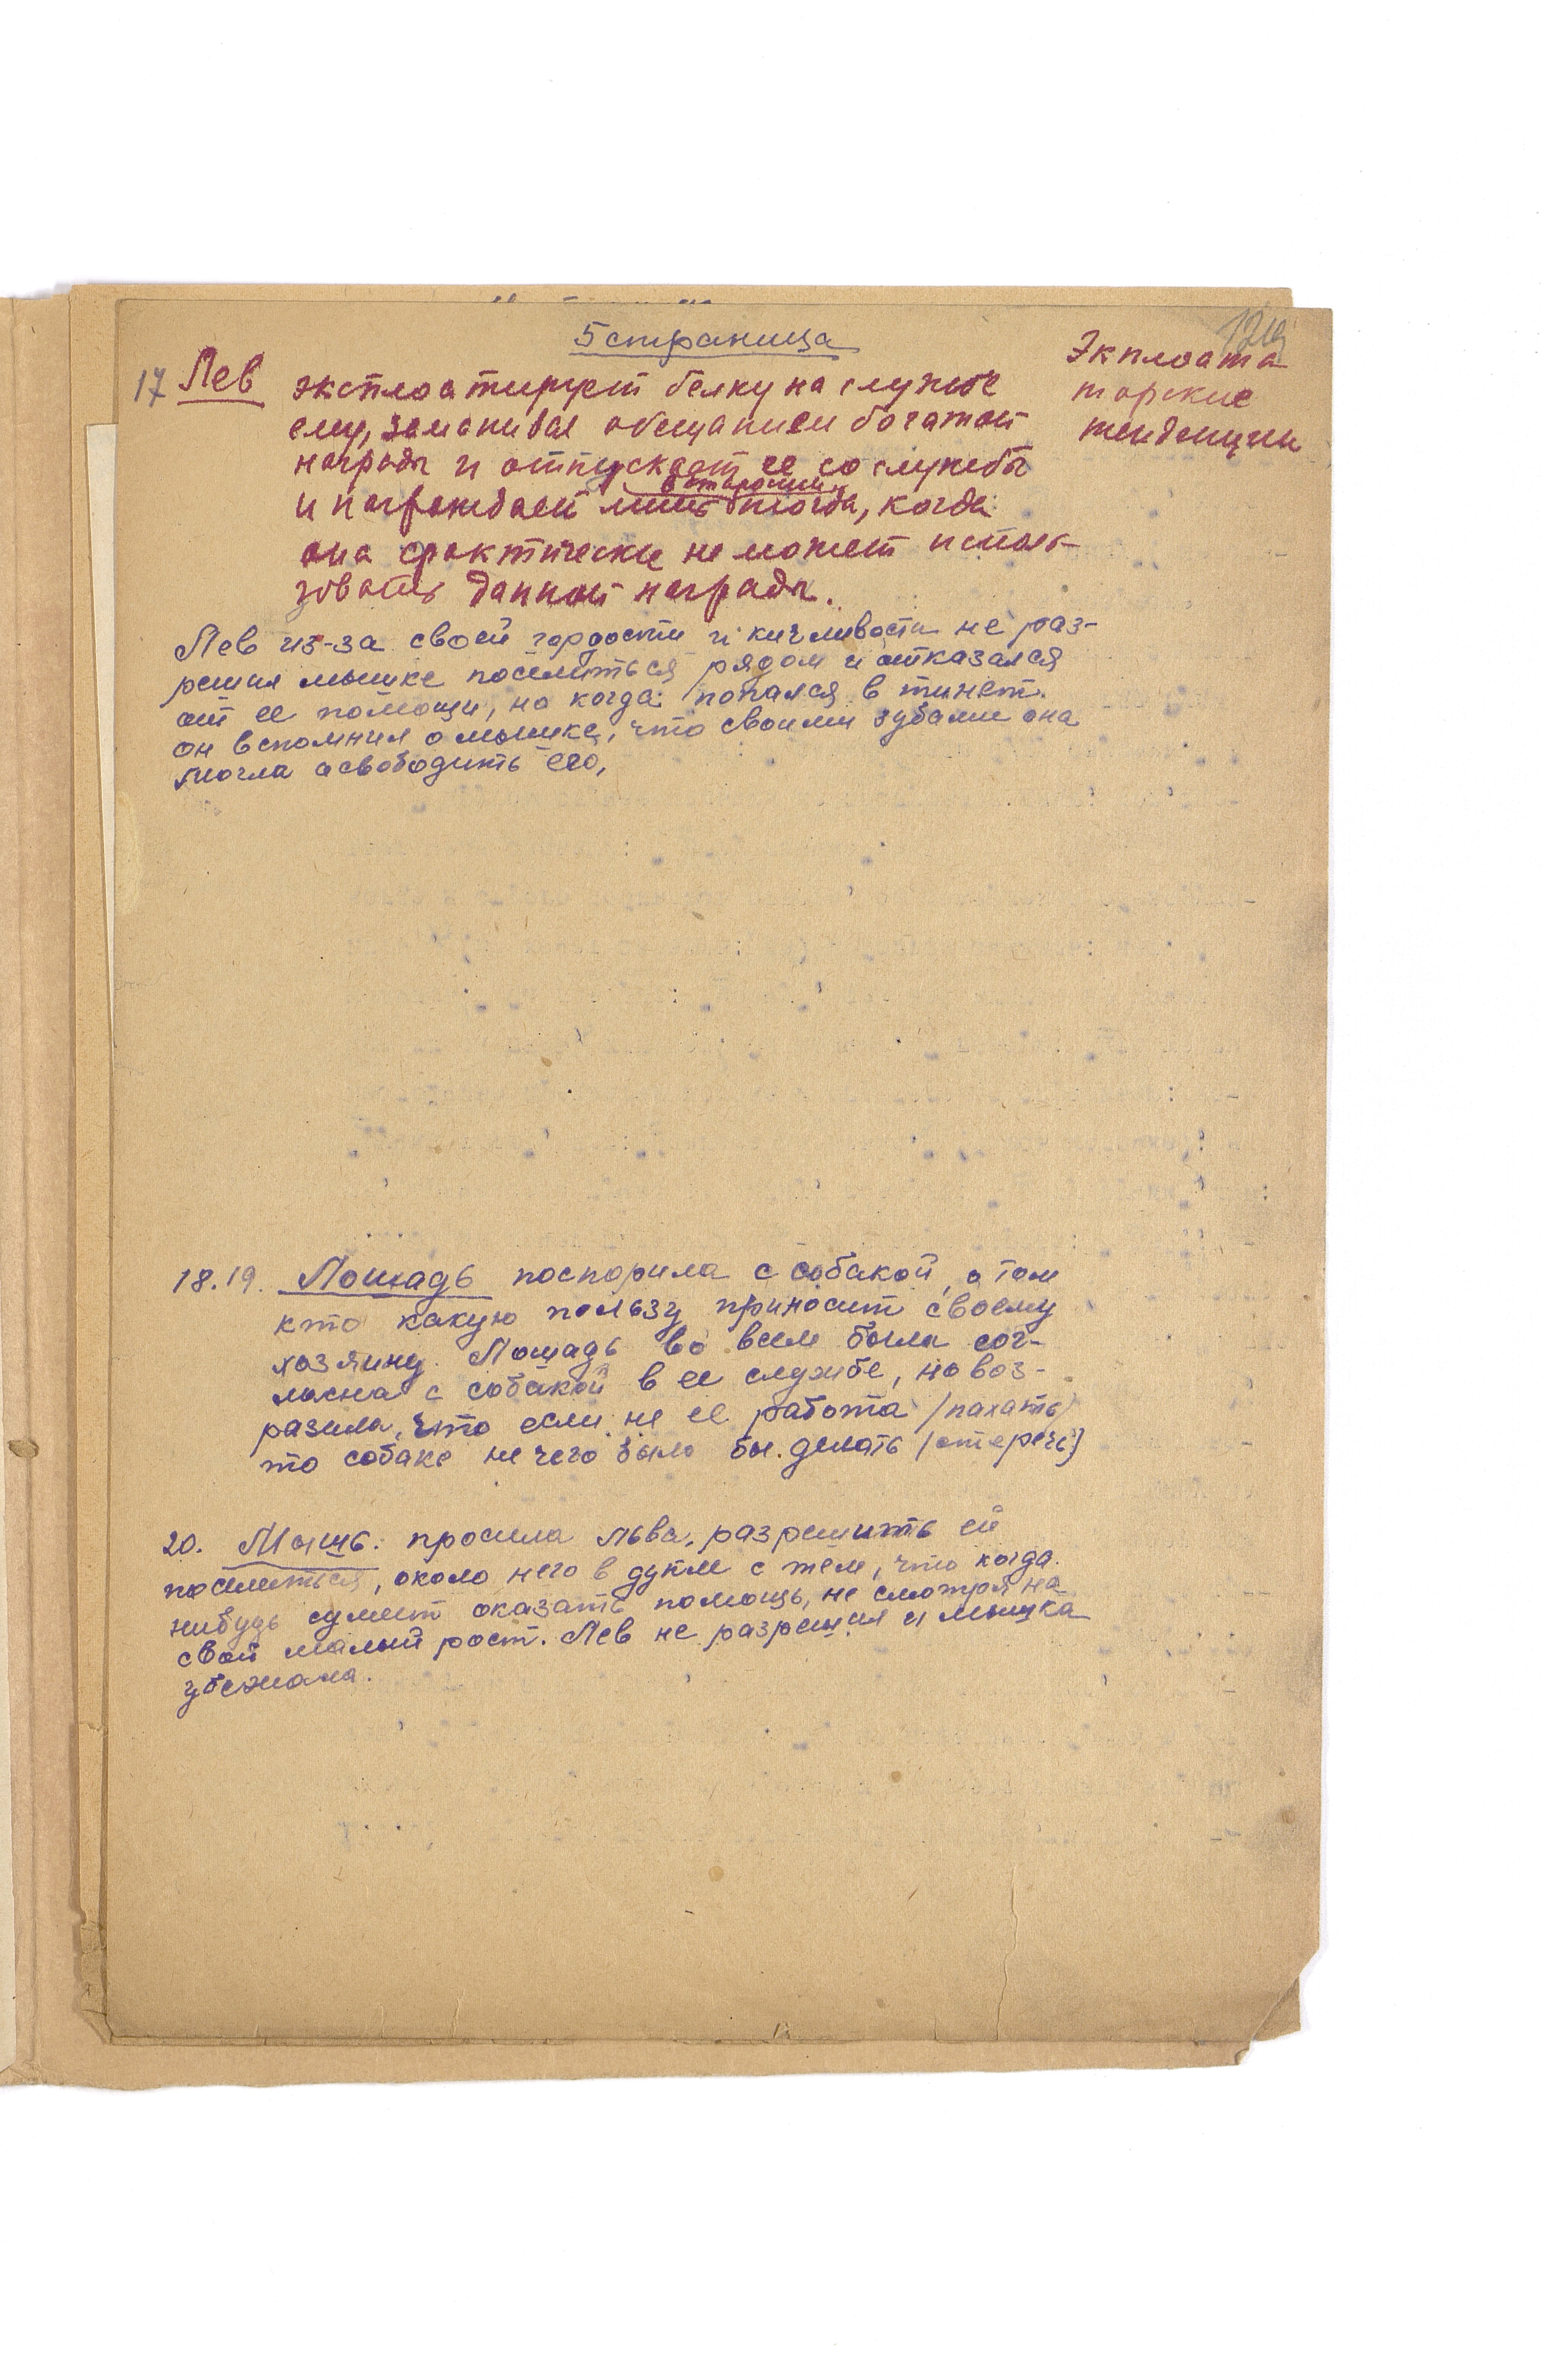 5 страница
Экплоата
торские
тенденции
17 Лев эксплоатирует белку на службе
ему, заманивая обещанием богатой
награды и отпускает ее со службы
в старости
и награждает лишь тогда, когда
она фактически не может исполь-
зовать данной награды.
Лев из-за своей гордости и кичливости не раз-
решил мышке поселиться рядом и отказался
от ее помощи, но когда попался в тинет.
он вспомнил о мышке, что своими зубами она
могла асвободить его,
18.19. Лошадь поспорила с собакой, о том
кто какую пользу приносит своему
хозяину. Лошадь во всем была сог-
ласна с собакой в ее службе, но воз-
разила, что если не ее работа /пахать/
то собаке не чего было бы делать /стеречь/
20. Мышь: просила льва, разрешить ей
поселиться, около него в дупле с тем, что когда
нибудь сумеет оказать помощь, не смотря на
свой малый рост. Лев не разрешил и мышка
убежала.